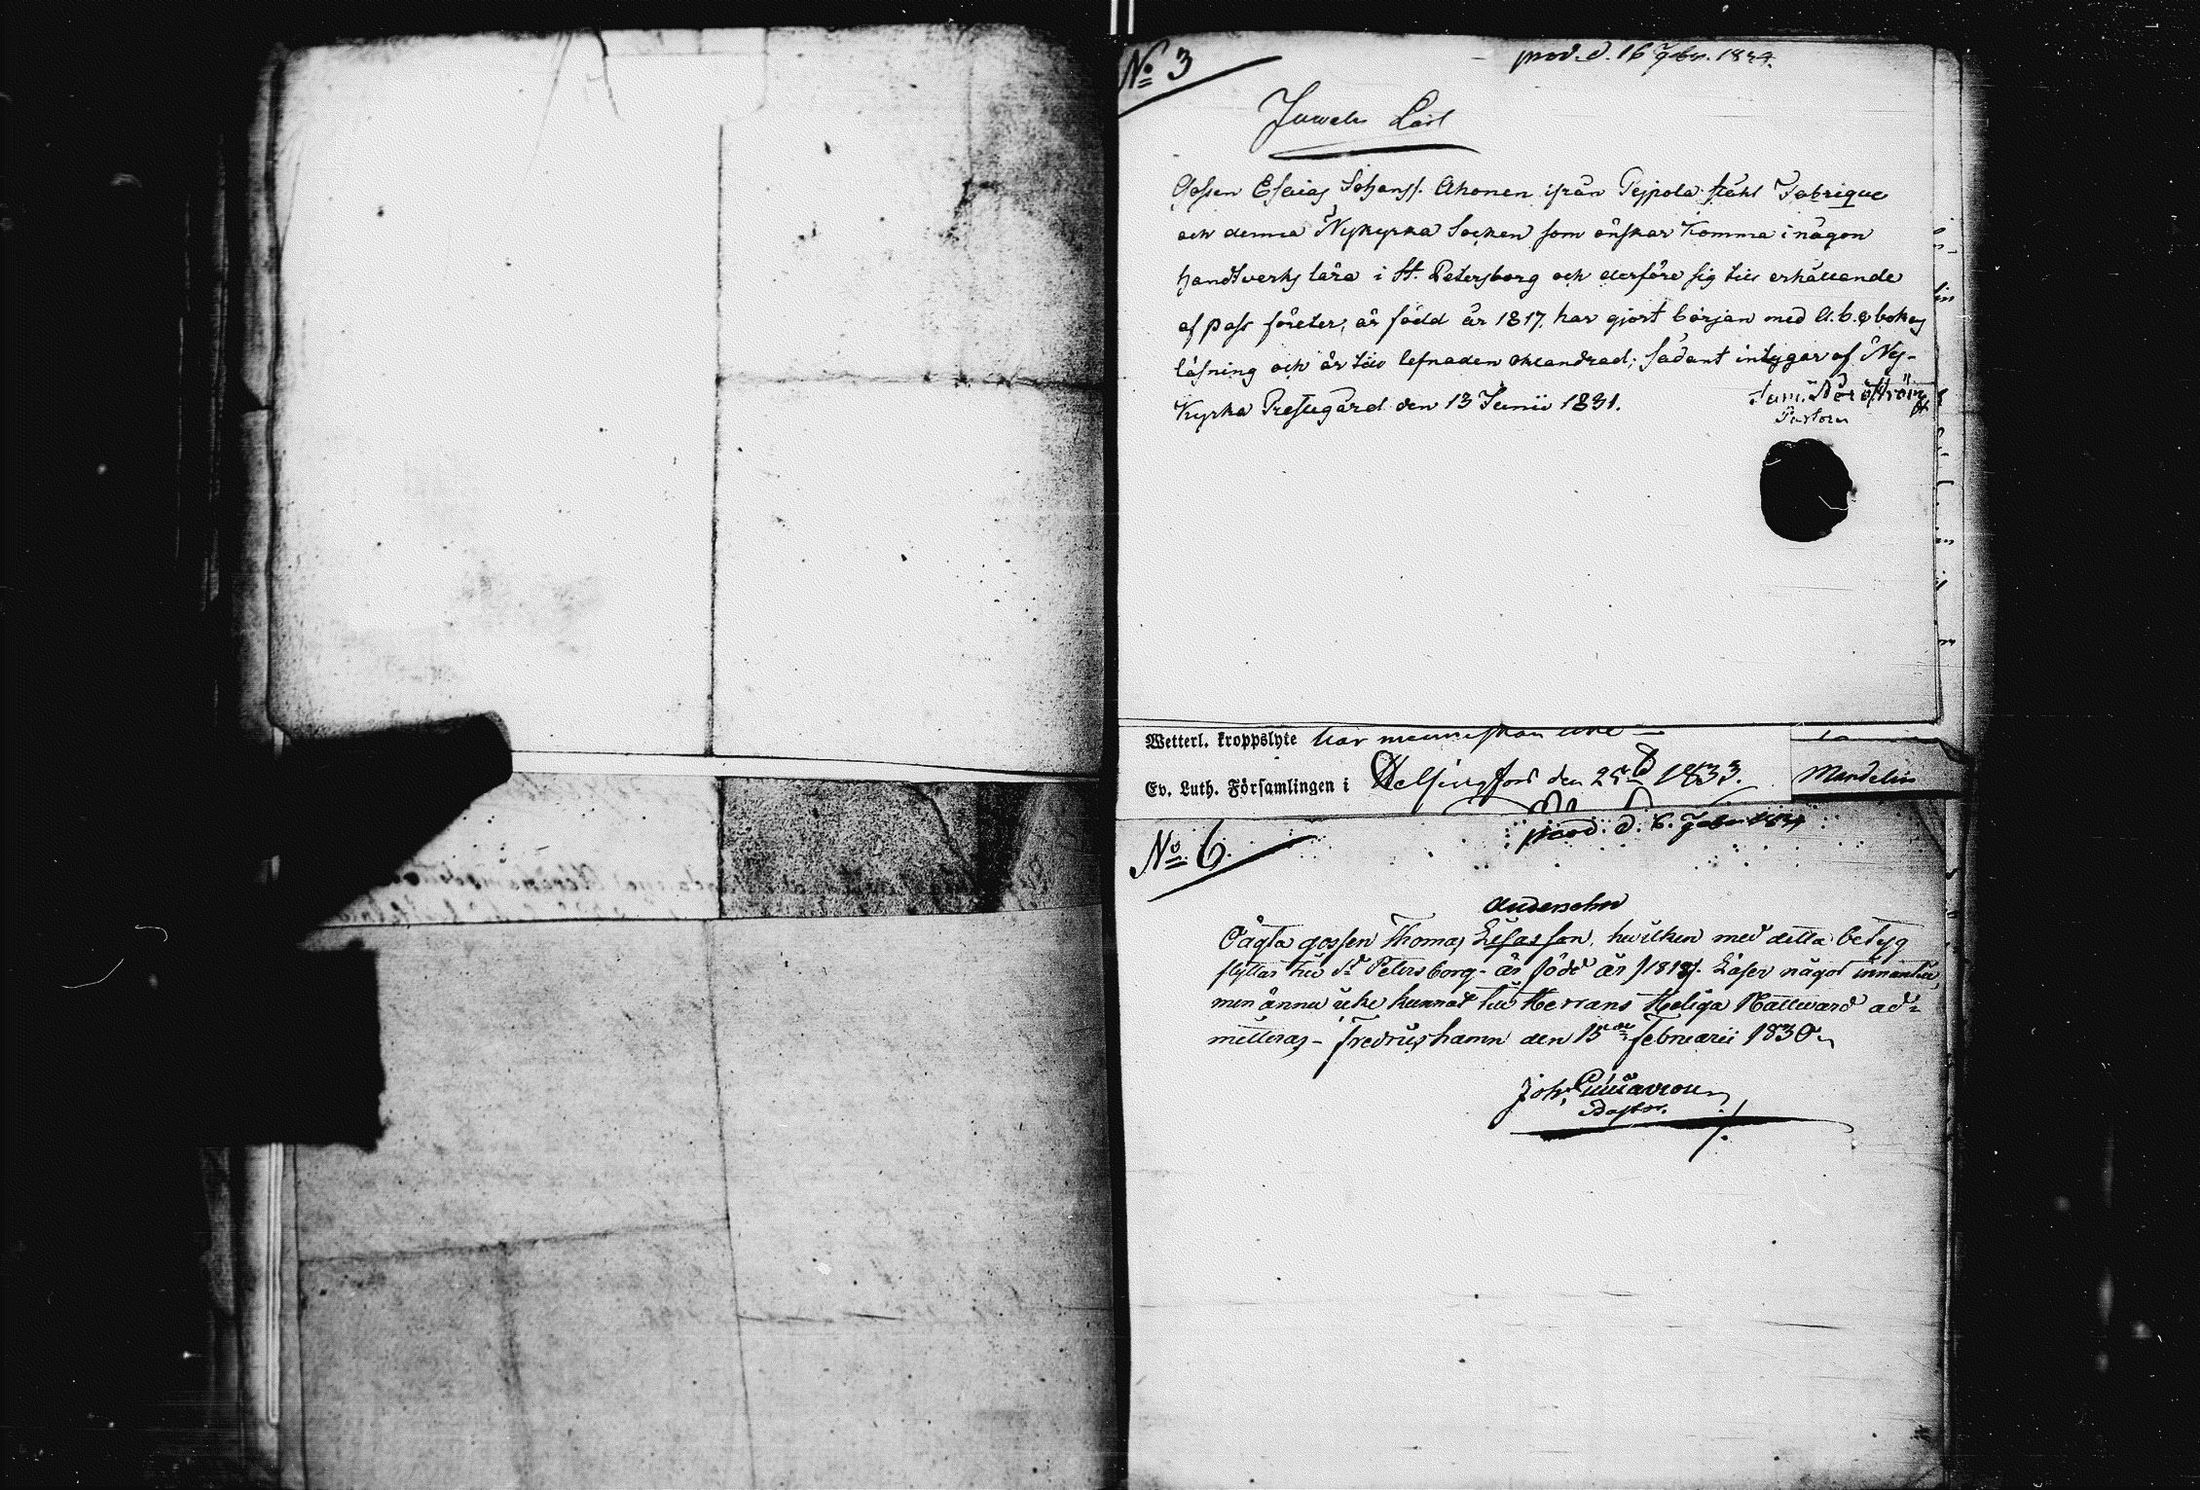 No 3
prod. d. 16 Febr. 1834.
Juwel. Lärl
Gossen Esaias Johanss. Ahonen ifrån Pejpola stähl Fabrique
och denna Nykyrka Socken som önskar komma i någon
handtverks lära i St. Petersborg och derföre sig till erhållande
af pass företer, är född år 1817, har gjort början med A.b.c boks
läsning och är till lefnaden oklandrad; sådant intygar af Ny-
Kyrka Prestegård den 13 Junii 1831.
Pastor
Wetterl. kroppslyte har menniskan icke
Ev. Luth. Församlingen i Helsingfors den 25 1833.
Mandelin
No. 6.
prod. d. 6. Febr 1834
Andersohn
Oägta gossen Thomas Lisasson, hvilken med detta betyg
flyttar till St Petersborg - är född år 1818. Läser något innantill,
men ännu icke kunnat till Herrans Heliga Nattward ad-
mitteras - Fredrikshamn den 15 Februarii 1830
Joh.
Pastor.